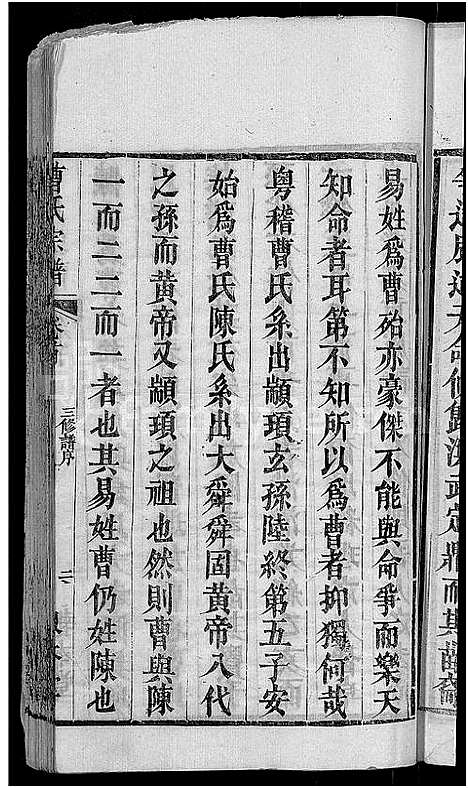 易姓爲曹殆亦豪傑不能與命爭而樂天
知命者耳第不知所以爲曹者抑獨何哉
粤稽曹氏系出顓頊玄孫陸終第五子安
始爲曹氏陳氏系出大舜舜固黃帝八代
之孫而黃帝又顓頊之祖也然則曹與陳
一而二二而一者也其易姓曹仍姓陳也
曹氏宗譜
三修譜序
二